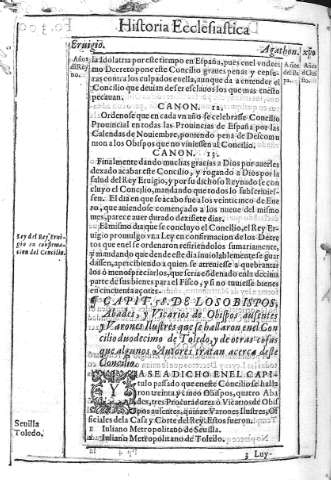 Historia Ecclesiastica
Eruigio. Agathon.
la Idolatria por este tiempo en España, pues en el vndecimo
Decreto pone este Concilio graues penas y censuras
contra los culpados en ella, aunque da a entender el
Concilio que deuian de ser esclauos los que mas en esto
pecauan.
CANON. 12.
Ordenose que en cada vn año se celebrasse Concilio
Prouincial en todas las Prouincias de España por las
Calendas de Nouiembre, poniendo pena de Descomunion
a los Obispos que no viniessen al Concilio.
CANON. 13.
Finalmente dando muchas gracias a Dios por auerles
dexado acabar este Concilio, y rogando a Dios por la
salud del Rey Eruigio, y por su dichoso Reynado se concluyo
el Concilio, mandando que todos lo subscriuiessen.
El dia en que se acabo fue a los veinticinco de Enero,
que auiendose començado a los nueue del mismo
mes, parece auer durado dezisiete dias.
El mismo dia que se concluyo el Concilio, el Rey Eruigio
promulgo vna Ley en confirmacion de los Decretos
que en el se ordenaron refiriendolos sumariamente,
y mandando que dende esse dia inuiolablemente se guardassen,
apercibiendo a quien se atreuiesse a quebrantarlos
ò menospreciarlos, que seria cõdenado en la decima
parte de sus bienes para el Fisco, y si no tuuiesse bienes
en cincuenta açotes.
Rey del Rey Eruigio
en confirmacion
del Concilio.
¶ CAPIT. 58. DE LOS OBISPOS,
Abades, y Vicarios de Obispos ausentes
y Varones Ilustres que se hallaron en el Concilio
duodecimo de Toledo, y de otras cosas
que algunos Autores tratan acerca deste
Concilio.
YA SE A DICHO EN EL CAPItulo
passado que en este Concilio se hallaron
treinta y cinco Obispos, quatro Abades,
tres Procuradores ò Vicarios de Obispos
ausentes, quinze Varones Ilustres, Oficiales
de la Casa y Corte del Rey: Estos fueron.
Seuilla 1 Iuliano Metropolitano de Seuilla.
Toledo. 2 Iuliano Metropolitano de Toledo.
3 Luy-